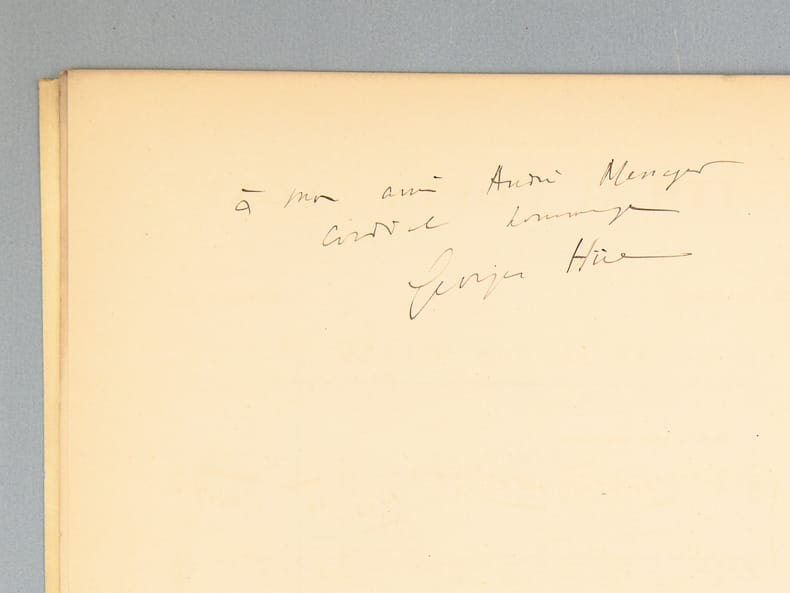 à mon ami André Messager
Cordial hommage
Georges Hüe